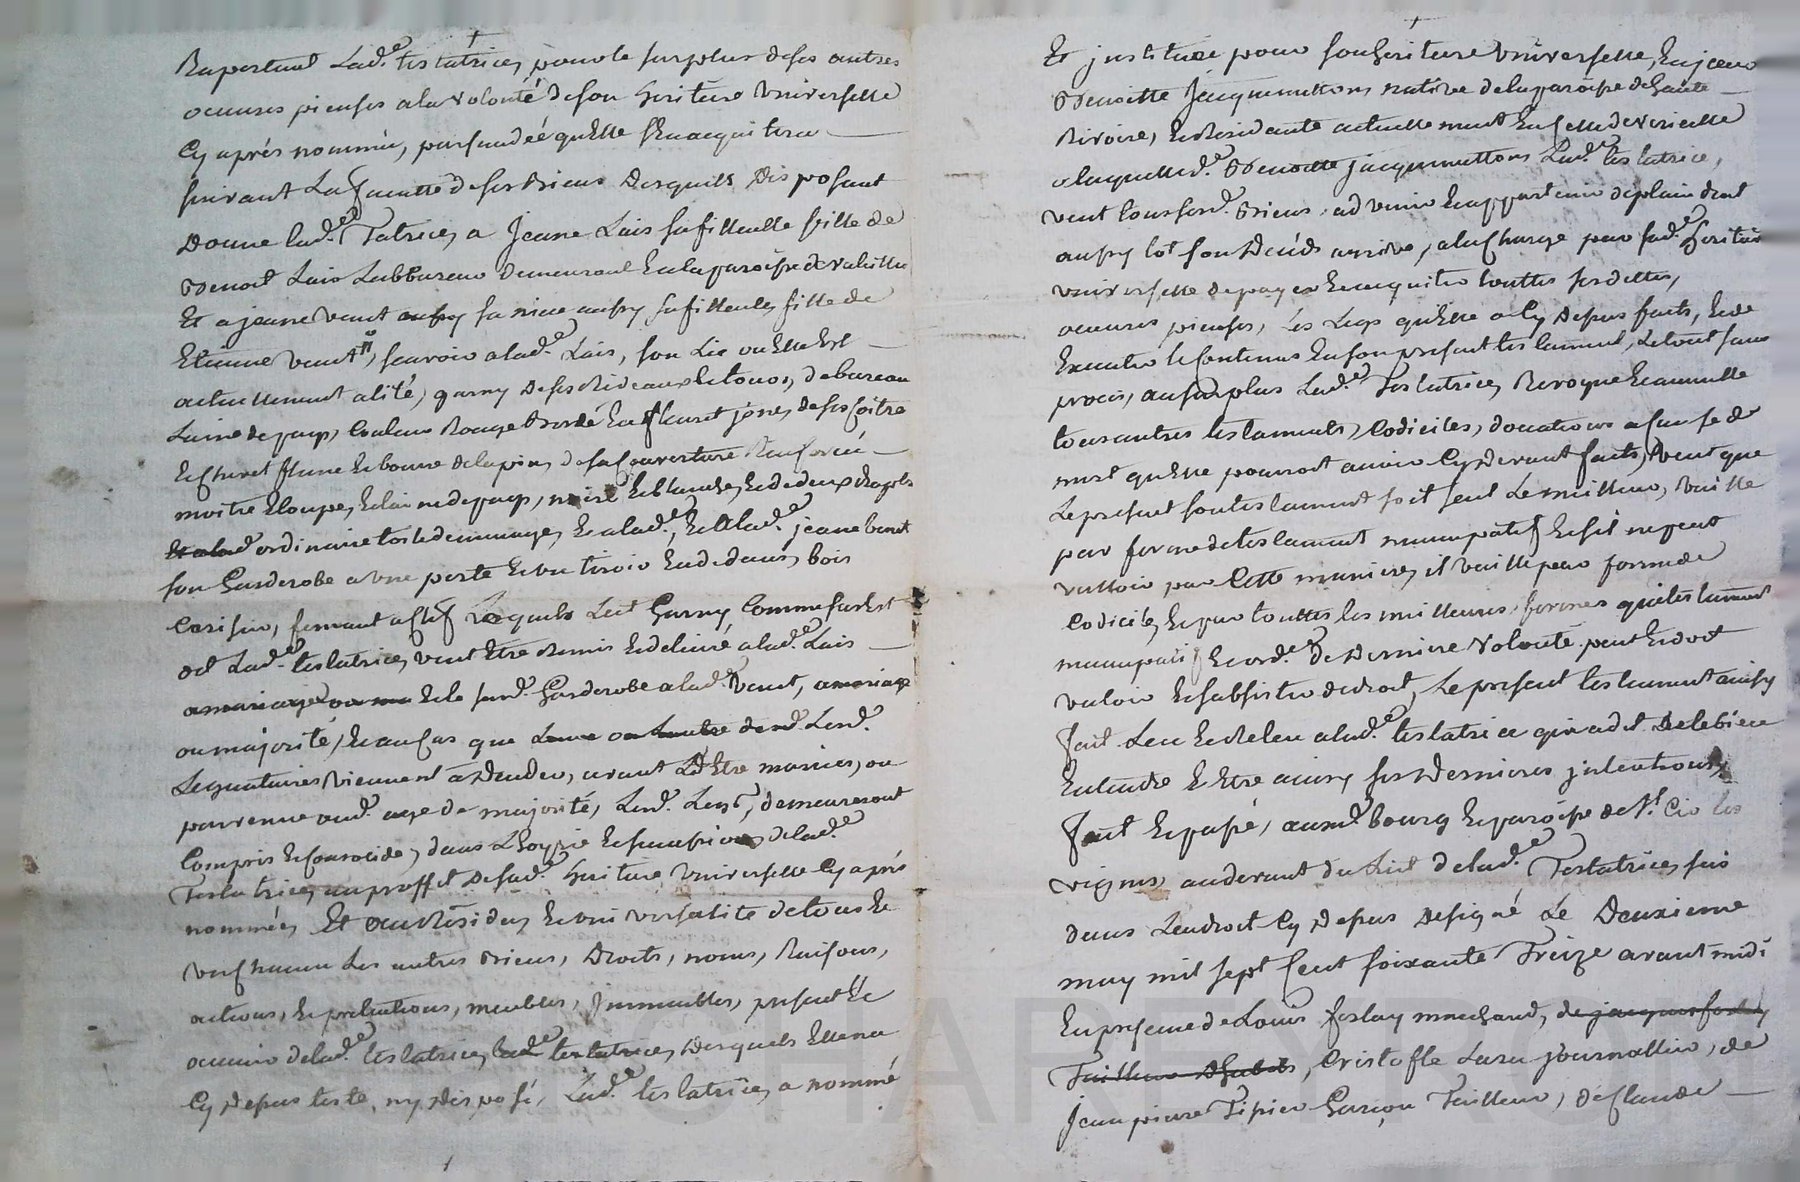 Raportant Lad.e testatrice, pour le surplus de ses autres
oeuvres pieuses a la volonté de son heritiere universelle
Cy aprés nommée, persuadeé qu'Elle s'En acquittera
suivant La faculté de ses biens Desquels Disposant
Donne lad.e Tatrice, a Jeane Lais sa filleulle fille de
Benoit Lais Labboureur demeurant En la paroisse de
Et a jeane venet aussy sa niece aussy sa filleule, fille de
Etienne venet, scavoir a lad.e Lais, son Lic ou Elle Est
actuellement alité, garny de ses Rideaux de bureau
Laine de pays, Couleur Rouge Bordé En fleuret jone, de ses coitre
Et chevet plume Et bourre de lapin, de sa Couverture
moitie Etoupe, Et laine de pays, noire Et blanche, Et de deux draps
Et a lad.e ordinaire toile de menage, Et a lad.e, Et a lad.e jeane venet
son Garderobe a une porte Et un tiroir En dedans, bois
Cerisier, fermant a clef Lesquels Lict Garny, Comme sus Est
dit Lad.e testatrice, veut Etre Remis Et delivré a lad.e Lais
a mariage ou Et le surd. Garderobe a lad.e venet, a mariage
ou majorité, Et au Cas que Lune ou Lautre desd. Lesd.
Legataires viennent a Deceder, avant D'Etre mariées, ou
parvenue aud. age de majorité, Lesd. Legs, demeureront
Compris Et Consolidé, dans L'hoyrie Et succession de lad.e
Testatrice, au proffit De sad.e heritiere universelle Cy aprés
nommée, Et au Residu, Et universalité de tous Et
un chacun Les autres biens, Droits, noms, Raisons,
actions, Et pretentions, meubles, Immeubles, present Et
avenir de lad.e testatrice, lad.e testatrice, Desquels Elle na
Cy Depus testé, ny Disposé, Lad.e testatrice, a nommé
Et institueé pour son heritiere universelle,
Benoitte Jacquemettons native de la paroisse de haute
Rivoire, Et Residante actuellement En celle de
a laquelle d.e Benoitte jacquemettons Lad.e testatrice,
veut tous sesd. biens, advenir Et appartenir de plain droit
aussy tot son Decéds arrivé, a la Charge par sad.e heritiere
universelle de payer Et acquitter touttes ses dettes,
oeuvres pieuses, Les Legs qu'Elle a Cy Depus faits, Et de
Executer le Contenus En son present testament, Le tout sans
procés, au surplus Lad.e Testatrice, Revoque Et annulle
tous autres testaments, Codiciles, donations a cause de
mort qu'Elle pouroit avoir Cy devant faits, veut que
Le present son testament soit seul Le meilleur, vaille
par forme de testament nuncupatif Et sil ne peut
valloir par Cette maniere, il vaille par forme de
Codicile, Et par touttes les meilleures formes que testament
nuncupatif Et ord.e De Derniere volonté peut Et doit
valoir Et subsister de droit, Le present testament ainsy
fait Leu Et Releu a lad.e testatrice qui a dit De le bien
Entendre Et Etre ainsy ses Dernieres jntentions,
fait Et passé, aumd. bourg Et paroisse de St. Cir les
vignes, au devant du Lict de lad.e Testatrice, sis
dans Lendroit Cy Depus designé Le Deuxieme
may mil sept Cent soixante Treize avant midi
En presence de Louis marchand, de jacques
Tailleur D'habits, Cristofle journallier, de
Jean pierre Garçon Tailleur, de Claude